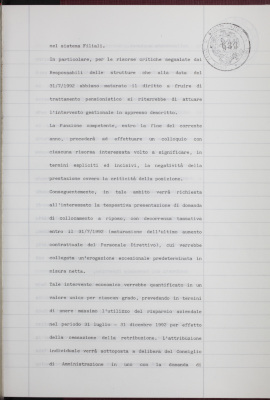 nel sistema Filiali.
In particolare, per le risorse critiche segnalate dai
Responsabili delle strutture che alla data del
31/7/1992 abbiano maturato il diritto a fruire di
trattamento pensionistico si riterrebbe di attuare
l'intervento gestionale in appresso descritto.
La Funzione competente, entro la fine del corrente
anno, provvederà ad effettuare un colloquio con
ciascuna risorsa interessata volto a significare, in
termini espliciti ed incisivi, la negatività della
prestazione ovvero la criticità della posizione.
Conseguentemente, in tale ambito verrà richiesta
all'interessato la tempestiva presentazione di domanda
di collocamento a riposo, con decorrenza tassativa
entro il 31/7/1992 (maturazione dell'ultimo aumento
contrattuale del Personale Direttivo), cui verrebbe
collegata un'erogazione eccezionale predeterminata in
misura netta.
Tale intervento economico verrebbe quantificato in un
valore unico per ciascun grado, prevedendo in termini
di onere massimo l'utilizzo del risparmio aziendale
nel periodo 31 luglio - 31 dicembre 1992 per effetto
della cessazione della retribuzione. L'attribuzione
individuale verrà sottoposta a delibera del Consiglio
di Amministrazione in uno con la domanda di